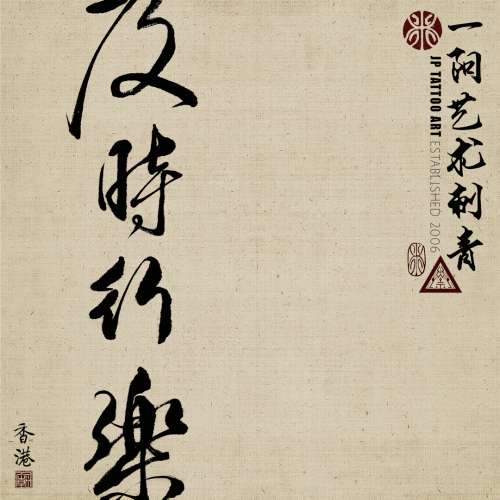 一阳艺术刺青
JP TATTOO ART ESTABLISHED 2006
及時行樂
香港